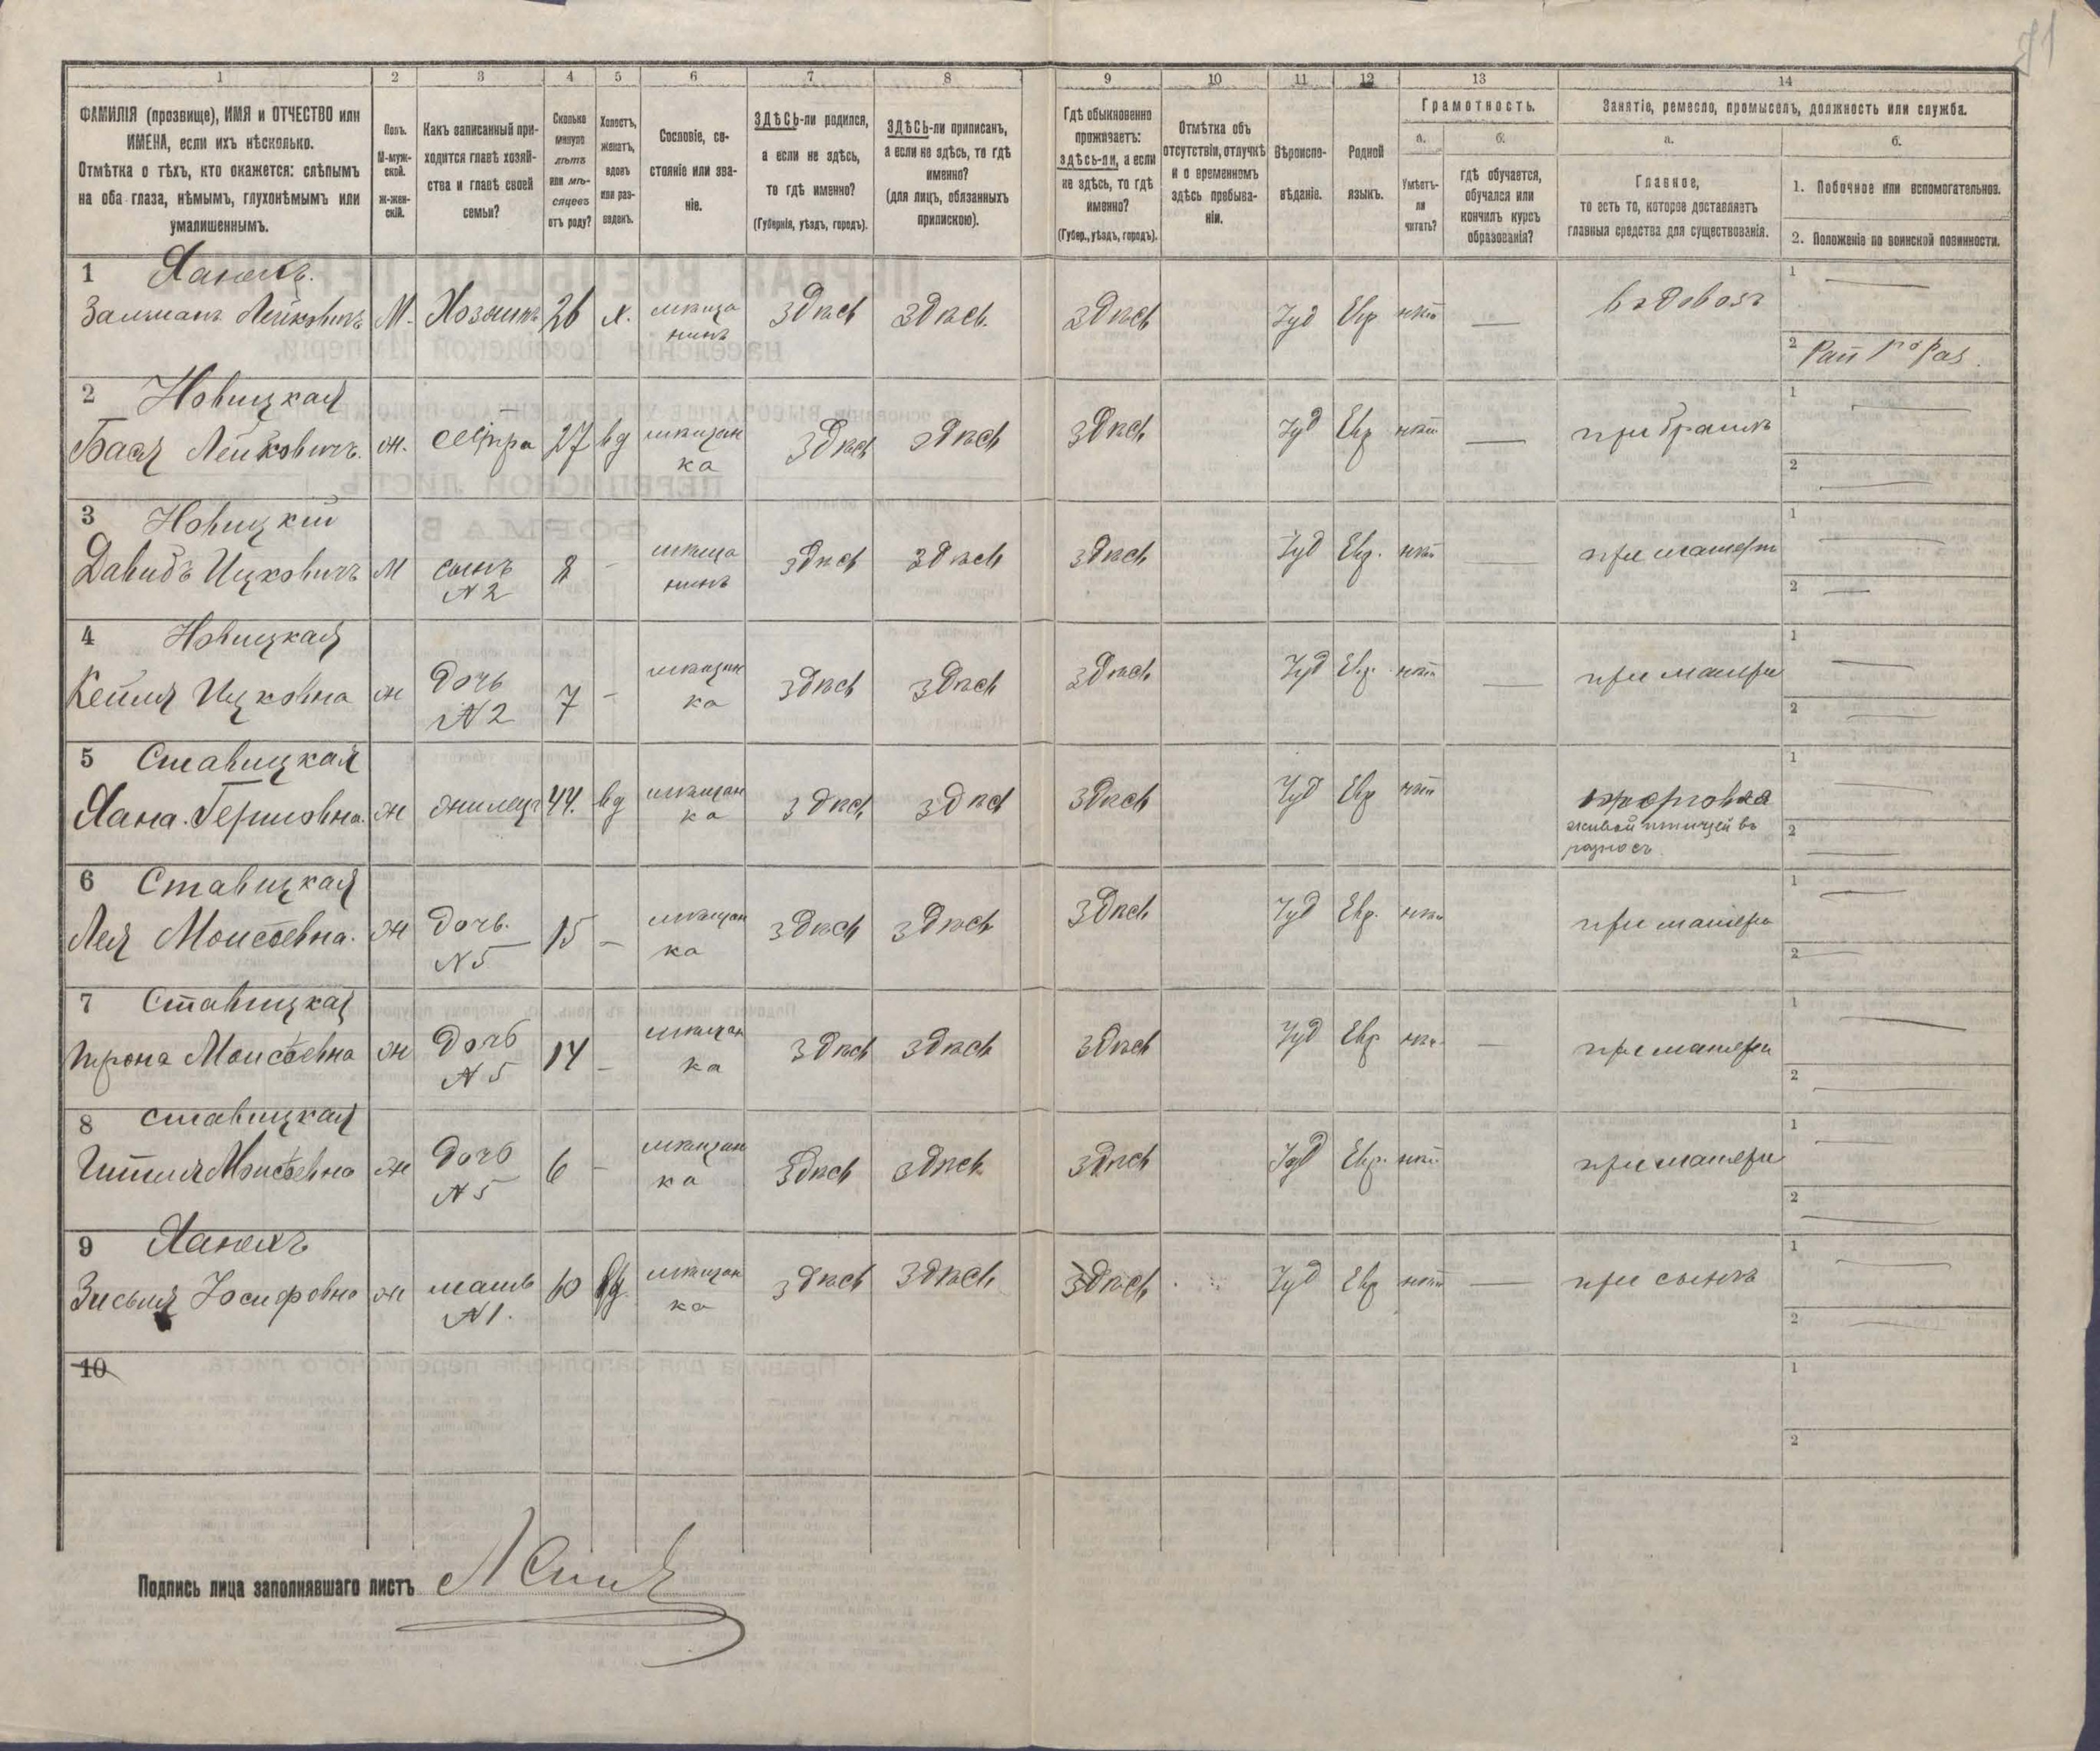 21
1
2
3
4
5
6
7
8
9
10
11
12
13
14
ФАМИЛІЯ (прозвище), ИМЯ и ОТЧЕСТВО или
ИМЕНА, если ихъ нѣсколько.
Отмѣтка о тѣхъ, кто окажется: слѣпымъ
на оба глаза, нѣмымъ, глухонѣмымъ или
умалишеннымъ.
Полъ.
М-муж-
ской.
Ж-жен-
скій.
Какъ записанный при-
ходится главѣ хозяй-
ства и главѣ своей
семьи?
Сколько
минуло
лѣтъ
или мѣ-
сяцевъ
отъ роду?
Холостъ,
женатъ,
вдовъ
или раз-
веденъ.
Сословіе, со-
стояніе или зва-
ніе.
ЗДѢСЬ-ли родился,
а если не здѣсь,
то гдѣ именно?
(Губернія, уѣздъ, городъ).
ЗДѢСЬ-ли приписанъ,
а если не здѣсь, то гдѣ
именно?
(для лицъ, обязанныхъ
припискою).
Гдѣ обыкновенно
проживаетъ:
здѣсь-ли, а если
не здѣсь, то гдѣ
именно?
(Губер., уѣздъ, городъ).
Отмѣтка объ
отсутствіи, отлучкѣ
и о временномъ
здѣсь пребыва-
ніи.
Вѣроиспо-
вѣданіе.
Родной
языкъ.
Грамотность.
а.
Умѣетъ-
ли
читать?
б.
гдѣ обучается,
обучался или
кончилъ курсъ
образованія?
Занятіе, ремесло, промыселъ, должность или служба.
а.
Главное,
то есть то, которое доставляетъ
главныя средства для существованія.
б.
1. Побочное или вспомогательное.
2. Положеніе по воинской повинности.
1 Ханехъ.
Залманъ Лейковичъ М. Хозяинъ 26 х. мѣща
нинъ
здѣсь здѣсь. здѣсь Іуд Евр нѣт — водовозъ
1 —
2 Рат 1го раз.
2 Новицкая
Бася Лейковичъ. ж. сестра 27 вд мѣщан
ка
здѣсь здѣсь здѣсь Іуд Евр нѣт — при братѣ
1 —
2 —
3 Новицкій
Давидъ Ицковичъ М сынъ
№ 2
8 - мѣща
нинъ
здѣсь здѣсь здѣсь Іуд Евр. нѣт — при матери
1 —
2 —
4 Новицкая
Кейля Ицковна ж дочь
№ 2
7 - мѣщан
ка
здѣсь здѣсь здѣсь Іуд Евр. нѣт — при матери
1 —
2 —
5 Ставицкая
Хана. Гершовна. ж жилецъ 44. вд мѣщан
ка
здѣсь здѣсь здѣсь Іуд Евр нѣт торговка
живой птицей въ
разносъ
1 —
2 —
6 Ставицкая
Лея Моисѣевна. ж дочь.
№ 5
15 - мѣщан
ка
здѣсь здѣсь здѣсь Іуд Евр. нѣт при матери
1 —
2 —
7 Ставицкая
Моисѣевна ж дочь
№ 5
14 - мѣщан
ка
здѣсь здѣсь здѣсь Іуд Евр нѣт — при матери
1 —
2 —
8 Ставицкая
Гитля Моисѣевна ж дочь
№ 5
6 - мѣщан
ка
здѣсь здѣсь здѣсь Іуд Евр. нѣт при матери
1 —
2 —
9 Ханехъ
Зисля Іосифовна ж мать
№ 1.
60 вд. мѣщан
ка
здѣсь здѣсь здѣсь Іуд Евр нѣт — при сынѣ
1 —
2 —
10
1
2
Подпись лица заполнявшаго листъ